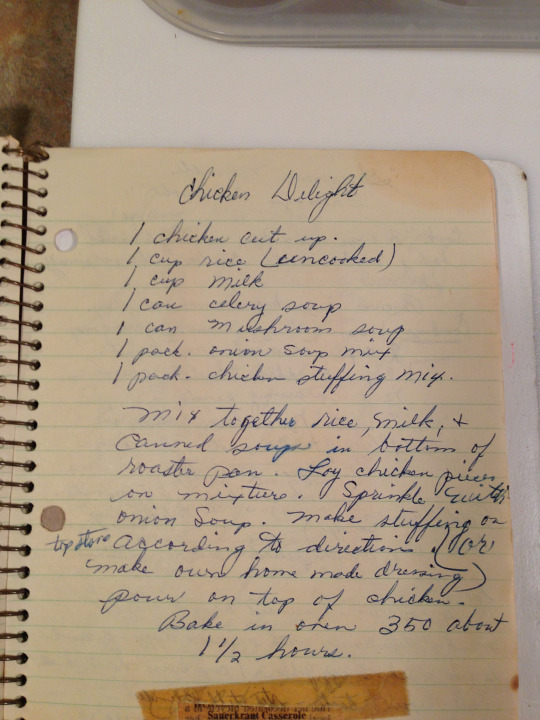 Chicken Dilight
1 chicken cut up.
1 cup rice (uncooked)
1 cup milk
1 can celery soup
1 can Mushroom soup
1 pack. onion soup mix
1 pack. chicken stuffing mix.
Mix together rice, milk, +
canned soups in bottom of
roaster pan. Lay chicken pieces
on mixture. Sprinkle with
onion Soup. Make stuffing on
top stove According to direction. (or
make own home made dressing)
pour on top of chicken.
Bake in oven 350 about
1 1/2 hours.
Sauerkraut Casserole